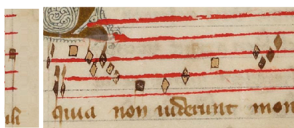 quia non uiderunt mon